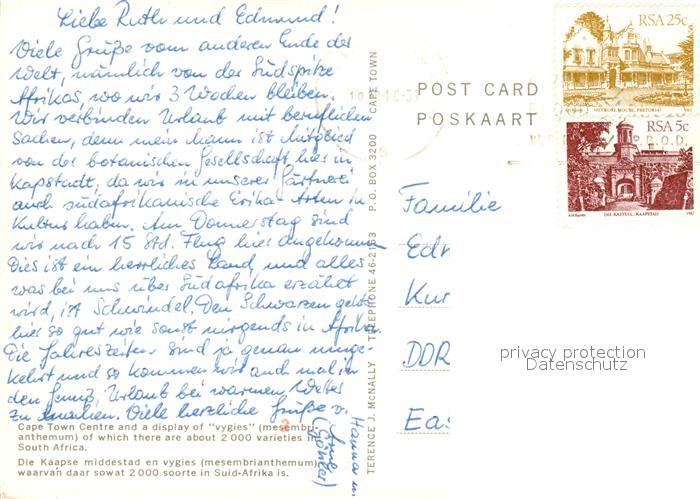 Liebe Ruth und Edmund!
Viele Grüße vom anderen Ende der
Welt, nämlich von der Südspitze
Afrikas, wo wir 3 Wochen bleiben.
Wir verbinden Urlaub mit beruflichen
Sachen, denn mein Mann ist Mitglied
von der botanischen Gesellschaft hier in
Kapstadt, da wir in unserer Gärtnerei
auch südafrikanische Erika-Arten in
Kultur haben. Am Donnerstag sind
wir nach 15 Std. Flug hier angekommen.
Dies ist ein herrliches Land und alles
was bei uns über Südafrika erzählt
wird, ist Schwindel. Den Schwarzen geht's
hier so gut wie sonst nirgends in Afrika.
Die Jahreszeiten sind ja genau umge-
kehrt und so kommen wir auch mal in
den Genuß, Urlaub bei warmen Wetter
zu machen. Viele herzliche Grüße v.
Hanna u.
Cape Town Centre and a display of "vygies" (mesembri-
anthemum) of which there are about 2 000 varieties in
South Africa.
Die Kaapse middestad en vygies (mesembrianthemum)
waarvan daar sowat 2 000 soorte in Suid-Afrika is.
TERENCE J. McNALLY TELEPHONE 46-2133 P.O. BOX 3200 CAPE TOWN
POST CARD
POSKAART
RSA 25c
MELROSE HOUSE, PRETORIA
RSA 5c
DIE KASTEEL, KAAPSTAD
1982
Familie
Edm
Kur
DDR
Eas
privacy protection
Datenschutz